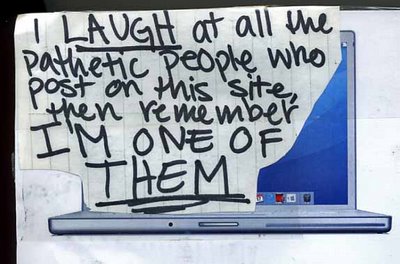 I LAUGH at all the
pathetic people who
post on this site,
then remember
I'M ONE OF
THEM